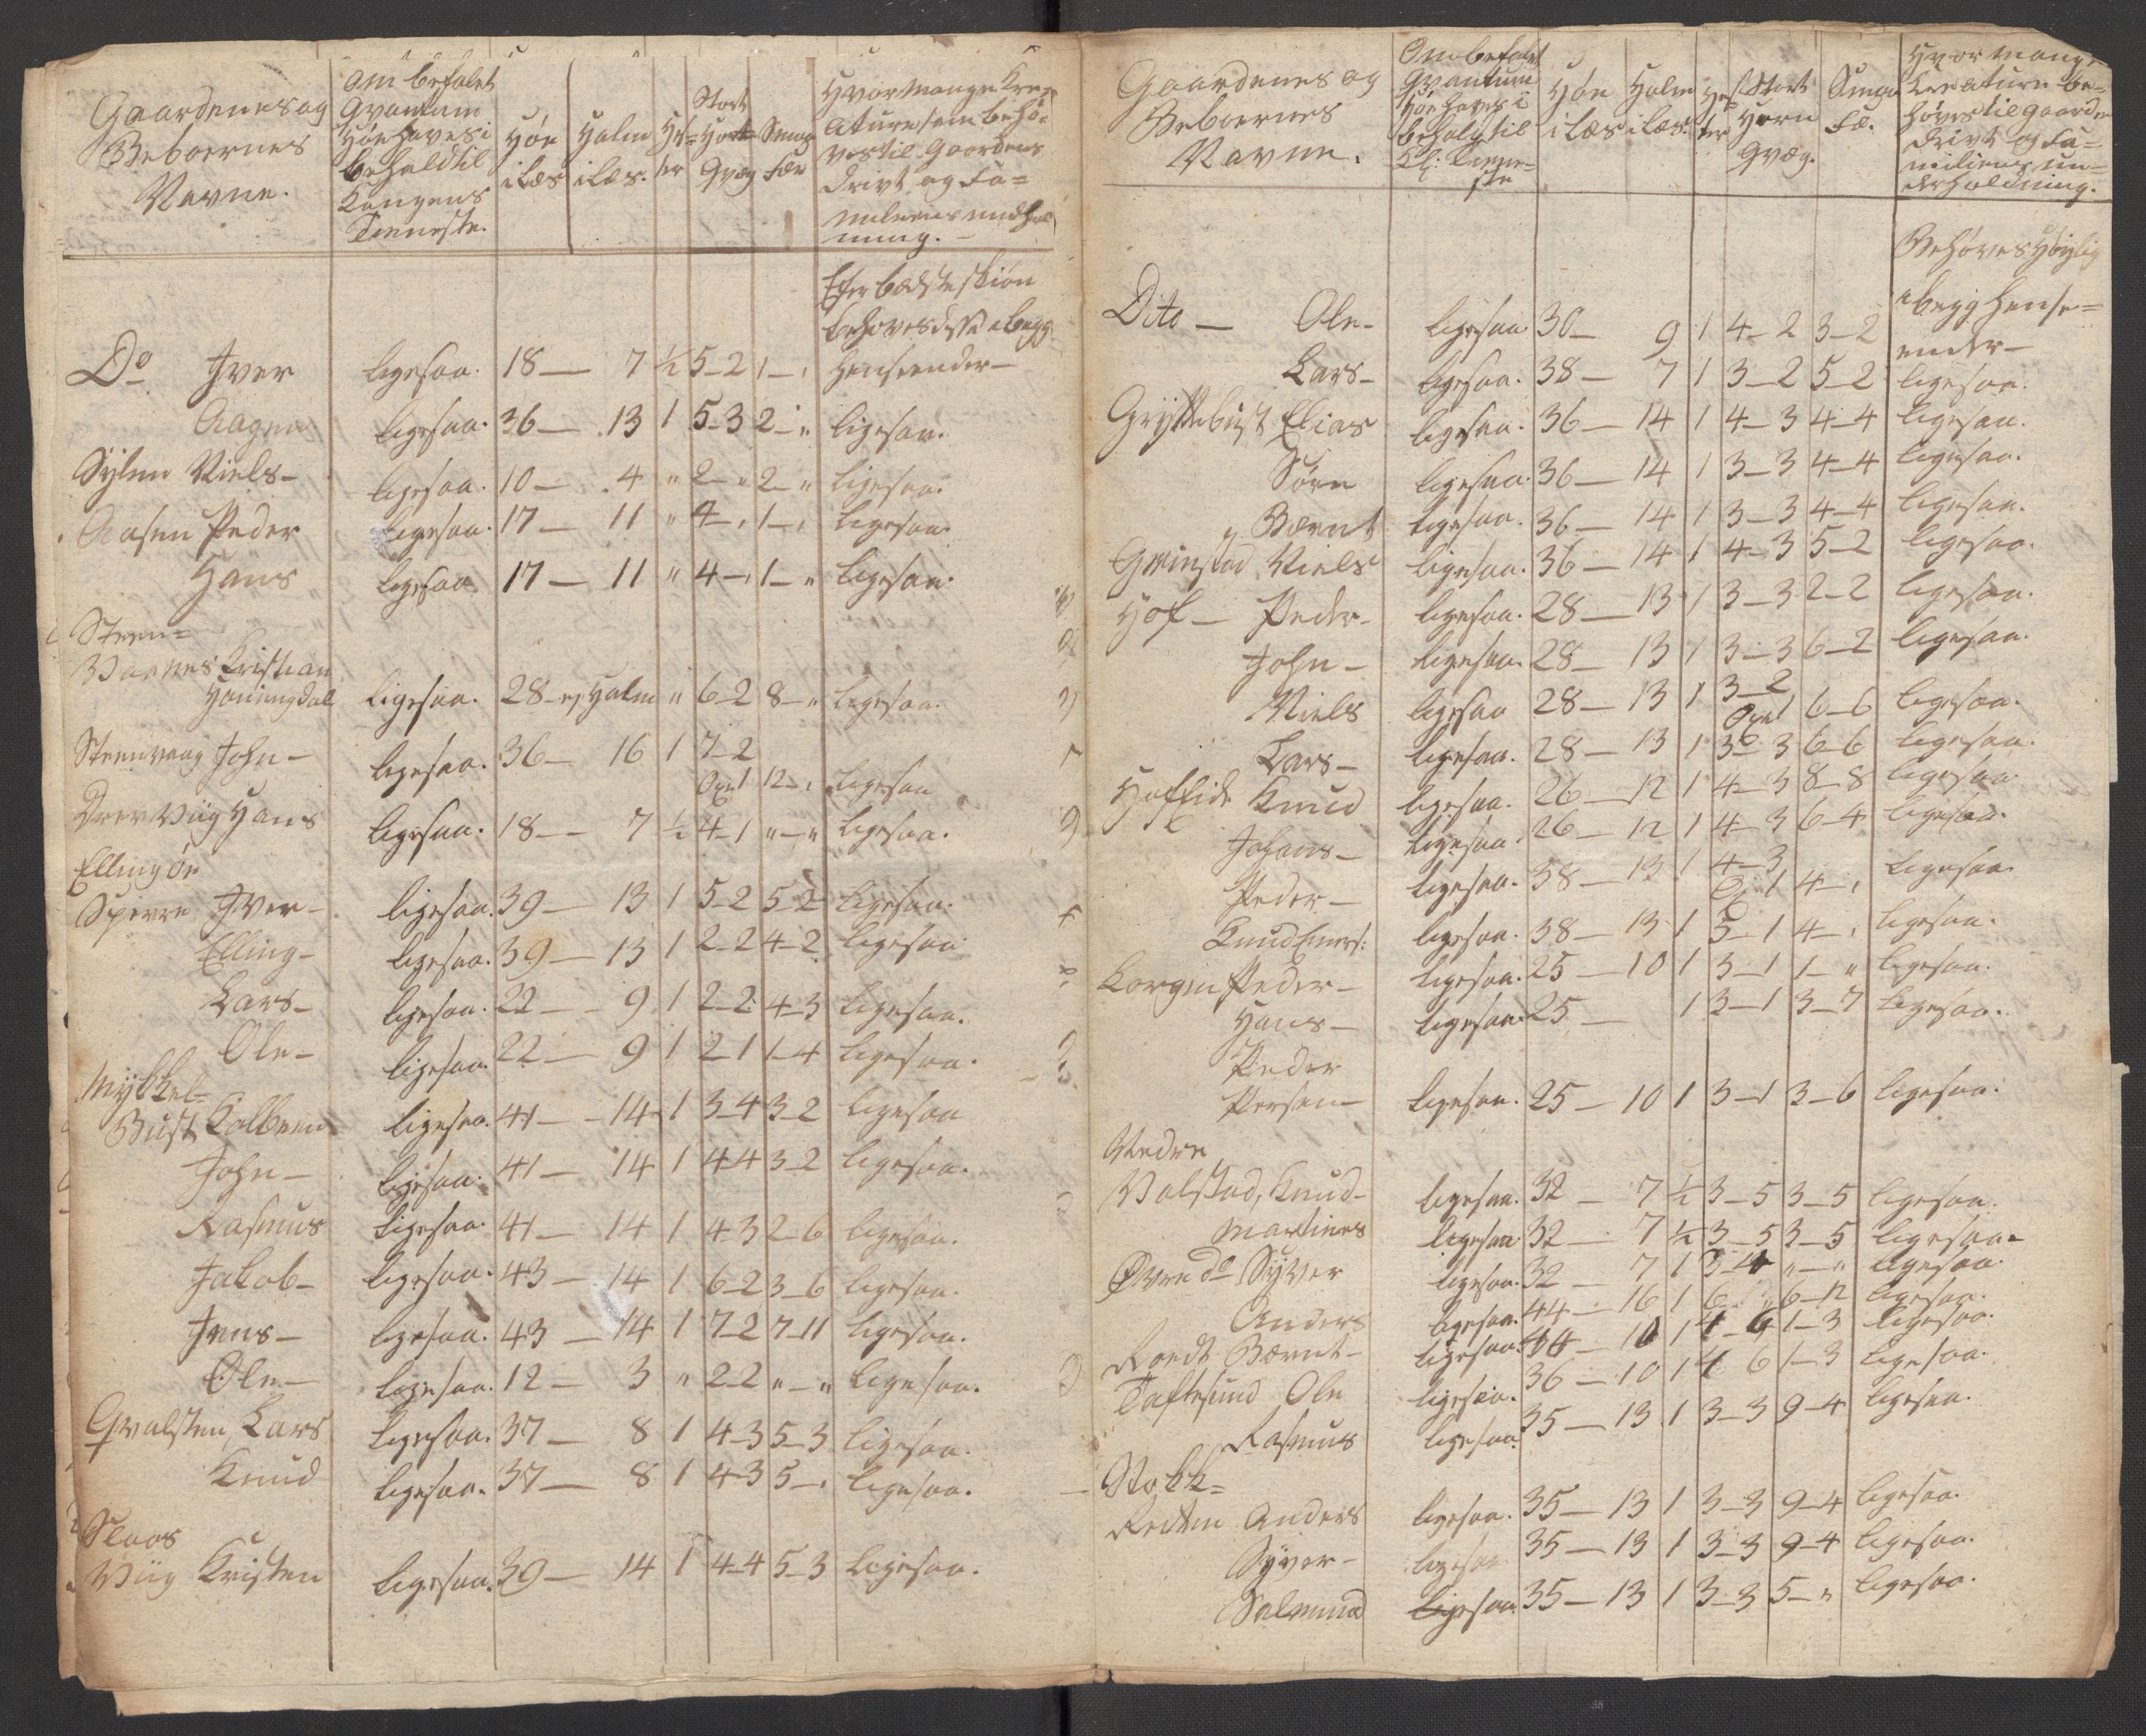 Gaardenes og
Beboernes
Navne.
Om befalet
Qvantum
Høe haves i
behold til
Kongens
Tieneste.
Høe
i Læs
Halm
i Læs.
Hes=
ter
Stort
Horn
Qvæg
Smaa
Fæe
Hvor mange Kre=
ature som behø=
ves til Gaardens
Drivt og Fa=
miliens undhol
ning.
Efter bædste skiøn
behøves disse i begge
Do Iver ligesaa. 18 — 7 ½ 5-2 1-, henseender —
Aagen ligesaa. 36 — 13 1 5-3 2-" ligesaa.
Sylen Niels — ligesaa. 10 — 4 " 2-" 2-" ligesaa.
Aasen Peder ligesaa. 17 — 11 " 4-, 1-, ligesaa.
Hans ligesaa 17 — 11 " 4-, 1-" ligesaa.
Steen=
Vaanes Kristian
Honingdal ligesaa. 28 — ej Halm " 6-2 8-" ligesaa.
Steenvaag John — ligesaa. 36 — 16 1 7-2
Oxe 1 12-, ligesaa
Drevviig Hans ligesaa. 18 — 7 ½ 4-1 "-" ligesaa.
Ellingøe
Sperre Iver — ligesaa. 39 — 13 1 5-2 5-2 ligesaa.
Elling — ligesaa. 39 — 13 1 2-2 4-2 ligesaa
Lars — ligesaa. 22 — 9 1 2-2 4-3 ligesaa.
Ole — ligesaa. 22 — 9 1 2-1 1-4 ligesaa.
Mykkel=
Bust Kolben ligesaa. 41 — 14 1 3-4 3-2 ligesaa
John — ligesaa. 41 — 14 1 4-4 3-2 ligesaa.
Rasmus ligesaa. 41 — 14 1 4 3 2-6 ligesaa.
Jakob — ligesaa. 43 — 14 1 6-2 3-6 ligesaa.
Jens — ligesaa. 43 — 14 1 7-2 7-11 ligesaa.
Ole — ligesaa. 12 — 3 " 2 2 "-" ligesaa.
Qvalsten, Lars ligesaa. 37 — 8 1 4-3 5-3 ligesaa.
Knud ligesaa. 37 — 8 1 4-3 5-, ligesaa.
Slaas
Viig Kristen ligesaa. 39 — 14 1 4-4 5-3 ligesaa.
Gaardenes og
Beboernes
Navne.
Om befalet
Qvantum
Høe haves i
behold til
Kl: Tiene=
ste
Høe
i Læs
Halm
i Læs.
Hes=
ter
Stort
Horn
Qvæg.
Smaa
Fæ.
Hvor mange
Kreature be=
høves til Gaarden
Drivt og Fa=
miliens un=
derholdning.
Behøves høylig
i begge hense=
Dito — Ole — ligesaa 30 — 9 1 4-2 3-2 ender —
Lars — ligesaa. 38 — 7 1 3-2 5-2 ligesaa.
Gryttebust Elias ligesaa. 36 — 14 1 4-3 4-4 ligesaa.
Søren ligesaa. 36 — 14 1 3-3 4-4 ligesaa.
Bærnt ligesaa. 36 — 14 1 3-3 4-4 ligesaa.
Grinstad Niels ligesaa. 36 — 14 1 4-3 5-2 ligesaa.
Hof — Peder — ligesaa. 28 — 13 1 3-3 2-2 ligesaa.
John — ligesaa. 28 — 13 1 3-3 6-2 ligesaa.
Niels ligesaa 28 — 13 1 3-2
Oxe 1 6-6 ligesaa.
Lars — ligesaa. 28 — 13 1 3-3 6-6 ligesaa.
Hoffide Knud ligesaa. 26 — 12 1 4-3 8-8 ligesaa.
Johans — ligesaa. 26 — 12 1 4-3 6-4 ligesaa.
Peder — ligesaa. 38 — 13 1 4-3
1 4-, ligesaa.
Knud Eners: ligesaa. 38 — 13 1 3-1 4-, ligesaa.
Korgen Peder — ligesaa. 25 — 10 1 3-1 1-" ligesaa.
Hans — ligesaa 25 — 1 3-1 3-7 ligesaa.
Peder
Persen — ligesaa. 25 — 10 1 3-1 3-6 ligesaa.
Nedre
Volstad, Knud — ligesaa. 32 — 7 ½ 3-5 3-5 ligesaa.
Martines ligesaa 32 — 7 ½ 3-5 3-5 ligesaa.
Øvre do Syver ligesaa. 32 — 7 1 3-4 "-" ligesaa.
Anders ligesaa. 44 — 16 1 6 6-12 ligesaa.
Roedt Bærnt — ligesaa. 44 — 10 1 4 6 1-3 ligesaa.
Taftesund Ole ligesaa. 36 — 10 1 4 6 1-3 ligesaa.
Rasmus ligesaa. 35 — 13 1 3-3 9-4 ligesaa.
Stokk=
Redten Anders ligesaa. 35 — 13 1 3-3 9-4 ligesaa.
Syver — ligesaa 35 — 13 1 3-3 9-4 ligesaa.
Salmund ligesaa. 35 — 13 1 3-3 5-" ligesaa.